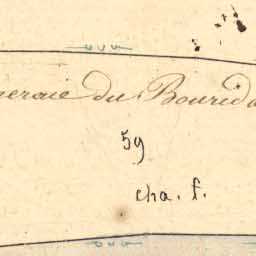 neraie du Bourid
59
cha. f.